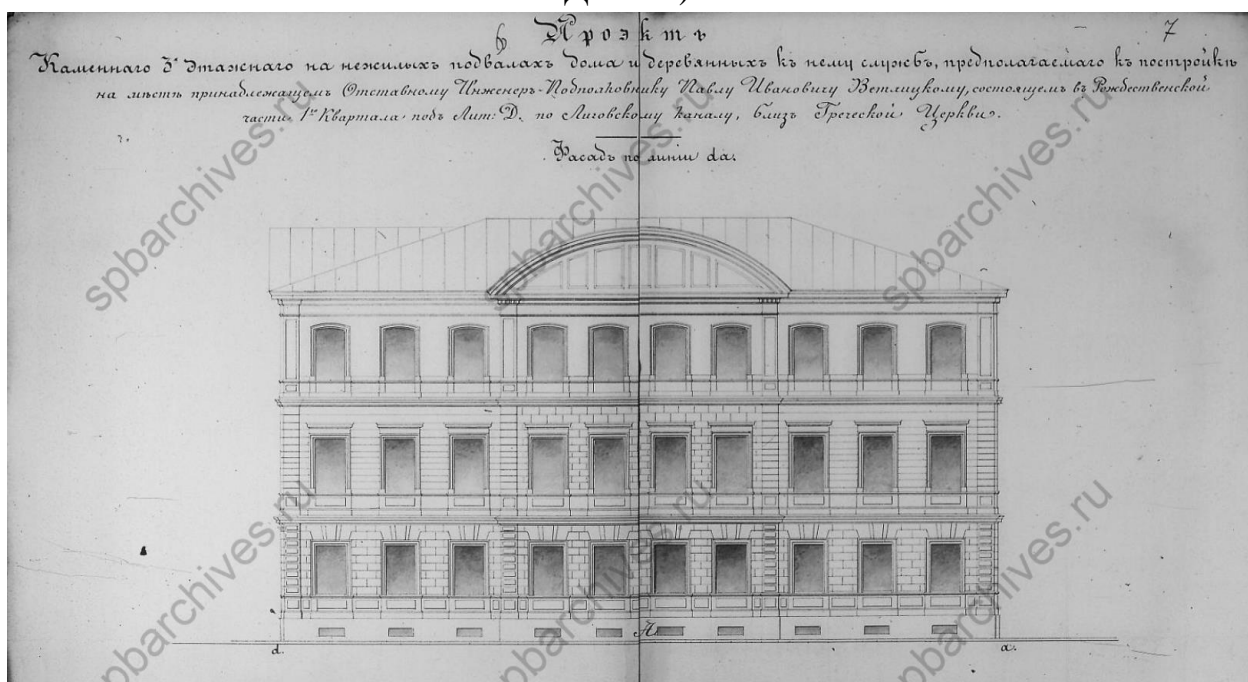 6 Проэктъ 7
Каменнаго 3х Этажнаго на нежилыхъ подвалахъ дома и деревянныхъ къ нему службъ, предполагаемаго къ постройкѣ
на мѣстѣ принадлежащемъ Отставному Инженеръ-Подполковнику Павлу Ивановичу Ветлицкому, состоящемъ въ Рождественской
части 1го Квартала подъ Лит: D. по Лиговскому каналу, близъ Греческой Церкви.
Фасадъ по линіи da.
A
d. a.
spbarchives.ru
spbarchives.ru
spbarchives.ru
spbarchives.ru
spbarchives.ru
spbarchives.ru